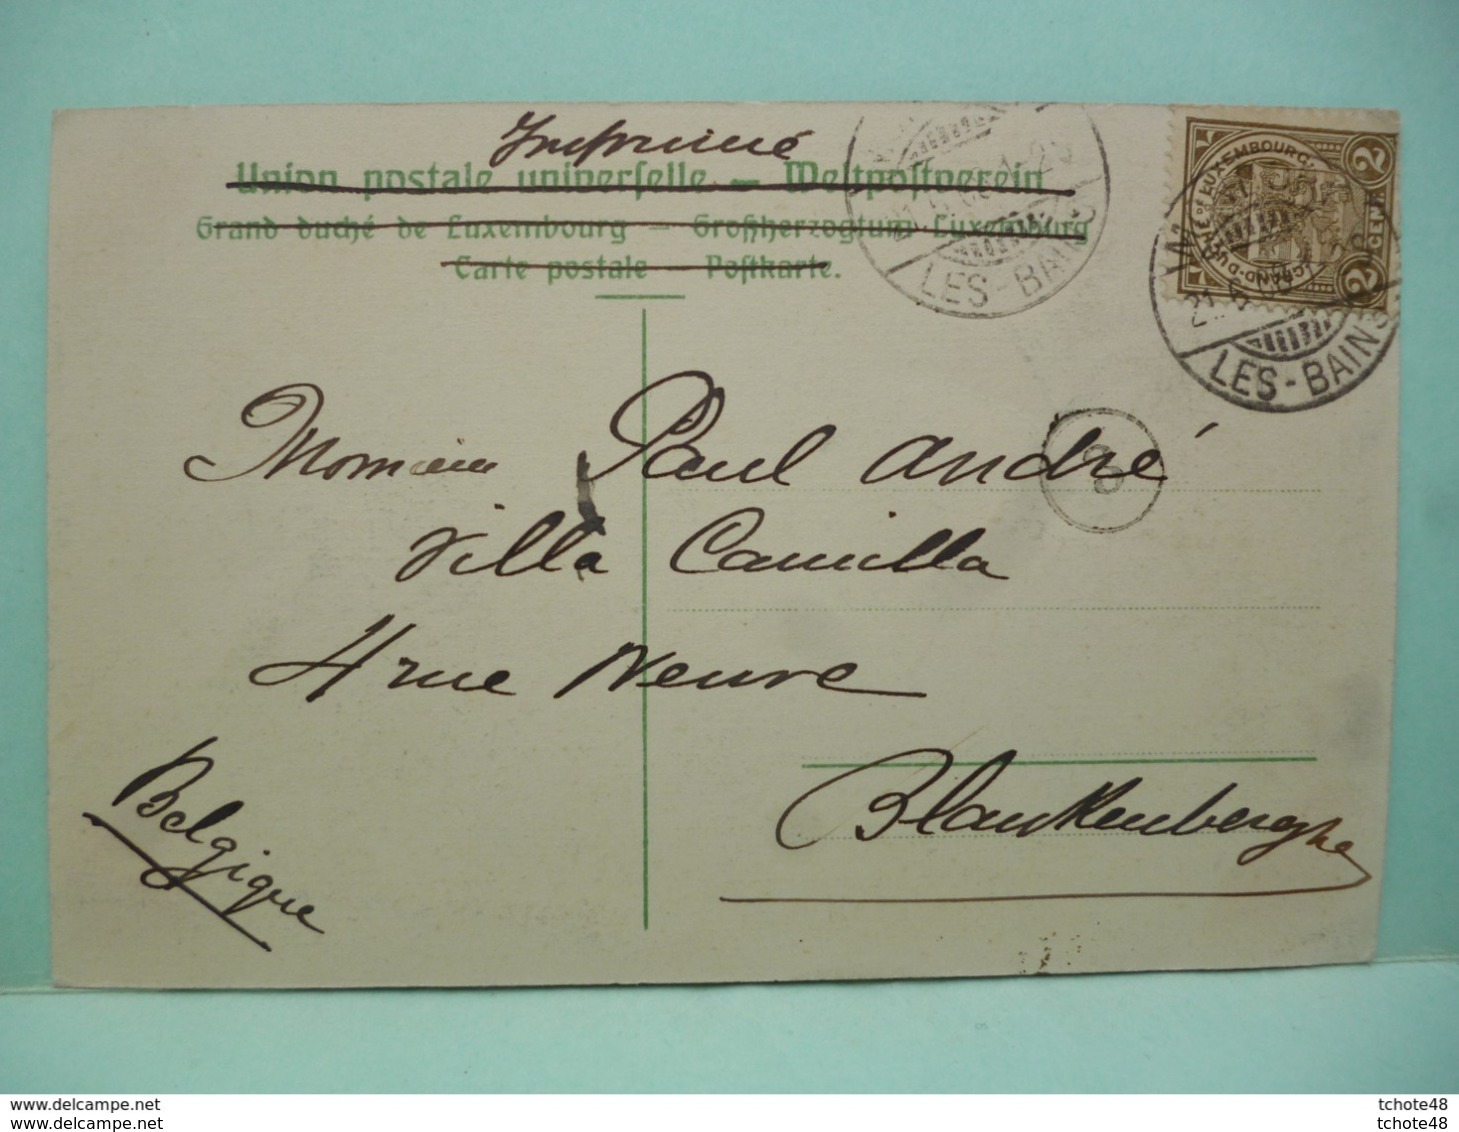 Imprimé
Union postale universelle. — Weltpostverein
Grand duché de Luxembourg — Großherzogtum Luxemburg
Carte postale — Postkarte.
LES-BAINS
GD DUCHÉ DE LUXEMBOURG
2 CENT. 2
21.5
LES-BAINS
8
Monsieur Paul André
Villa Camilla
4 rue Neuve
Blankenberghe
Belgique
www.delcampe.net
www.delcampe.net
tchote48
tchote48